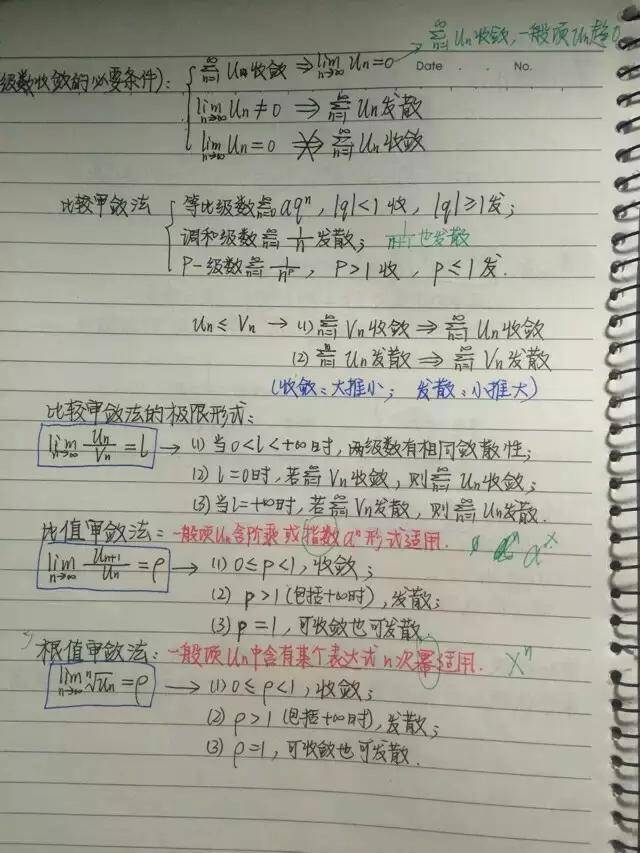 ∑(n=1→∞) Un收敛,一般项Un趋0
Date . . No.
级数收敛的必要条件): { ∑(n=1→∞) Un收敛 ⇒ lim(n→∞) Un=0
lim(n→∞) Un≠0 ⇒ ∑(n=1→∞) Un发散
lim(n→∞) Un=0 ⇏ ∑(n=1→∞) Un收敛
比较审敛法 { 等比级数 ∑(n=0→∞) aqⁿ, |q|<1 收, |q|≥1发;
调和级数 ∑(n=1→∞) 1/n 发散; 1/(n+1) 也发散
P-级数 ∑(n=1→∞) 1/nᵖ, P>1 收, p≤1 发.
Un≤Vn → (1) ∑(n=1→∞) Vn收敛 ⇒ ∑(n=1→∞) Un收敛
(2) ∑(n=1→∞) Un发散 ⇒ ∑(n=1→∞) Vn发散
(收敛:大推小; 发散:小推大)
比较审敛法的极限形式:
lim(n→∞) Un/Vn = l → (1) 当0<l<+∞时, 两级数有相同敛散性;
(2) l=0时, 若 ∑(n=1→∞) Vn收敛, 则 ∑(n=1→∞) Un收敛;
(3) 当l=+∞时, 若 ∑(n=1→∞) Vn发散, 则 ∑(n=1→∞) Un发散.
比值审敛法:一般项Un含阶乘或指数aⁿ形式适用. aˣ
lim(n→∞) Un+1/Un = ρ → (1) 0≤ρ<1, 收敛;
(2) ρ>1 (包括+∞时), 发散;
(3) ρ=1, 可收敛也可发散.
根值审敛法:一般项Un中含有某个表达式n次幂适用. Xⁿ
lim(n→∞) ⁿ√Un = ρ → (1) 0≤ρ<1, 收敛;
(2) ρ>1 (包括+∞时), 发散;
(3) ρ=1, 可收敛也可发散.